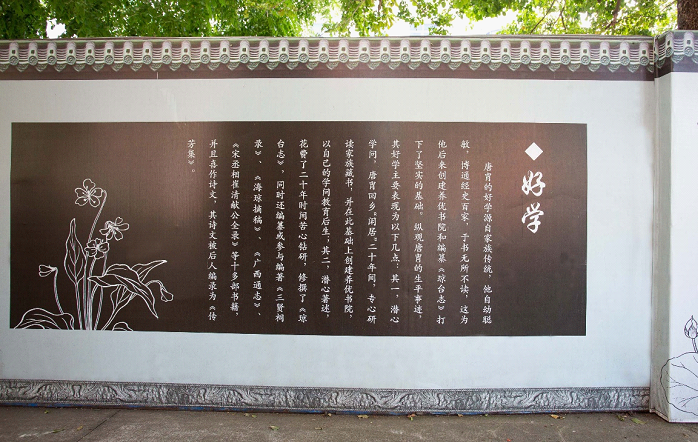 好学
唐胄的好学源自家族传统，他自幼聪
敏，博通经史百家，于书无所不读，这为
他后来创建养优书院和编纂《琼台志》打
下了坚实的基础。纵观唐胄的生平事迹，
其好学主要表现为以下几点：其一，潜心
学问，唐胄回乡“闲居”二十年间，专心研
读家族藏书，并在此基础上创建养优书院，
以自己的学问教育后生；其二，潜心著述，
花费了二十年时间苦心钻研，修撰了《琼
台志》，同时还编纂或参与编著《三贤祠
录》、《海琼摘稿》、《广西通志》、
《宋丞相崔清献公全录》等十多部书籍，
并且喜作诗文，其诗文被后人编录为《传
芳集》。